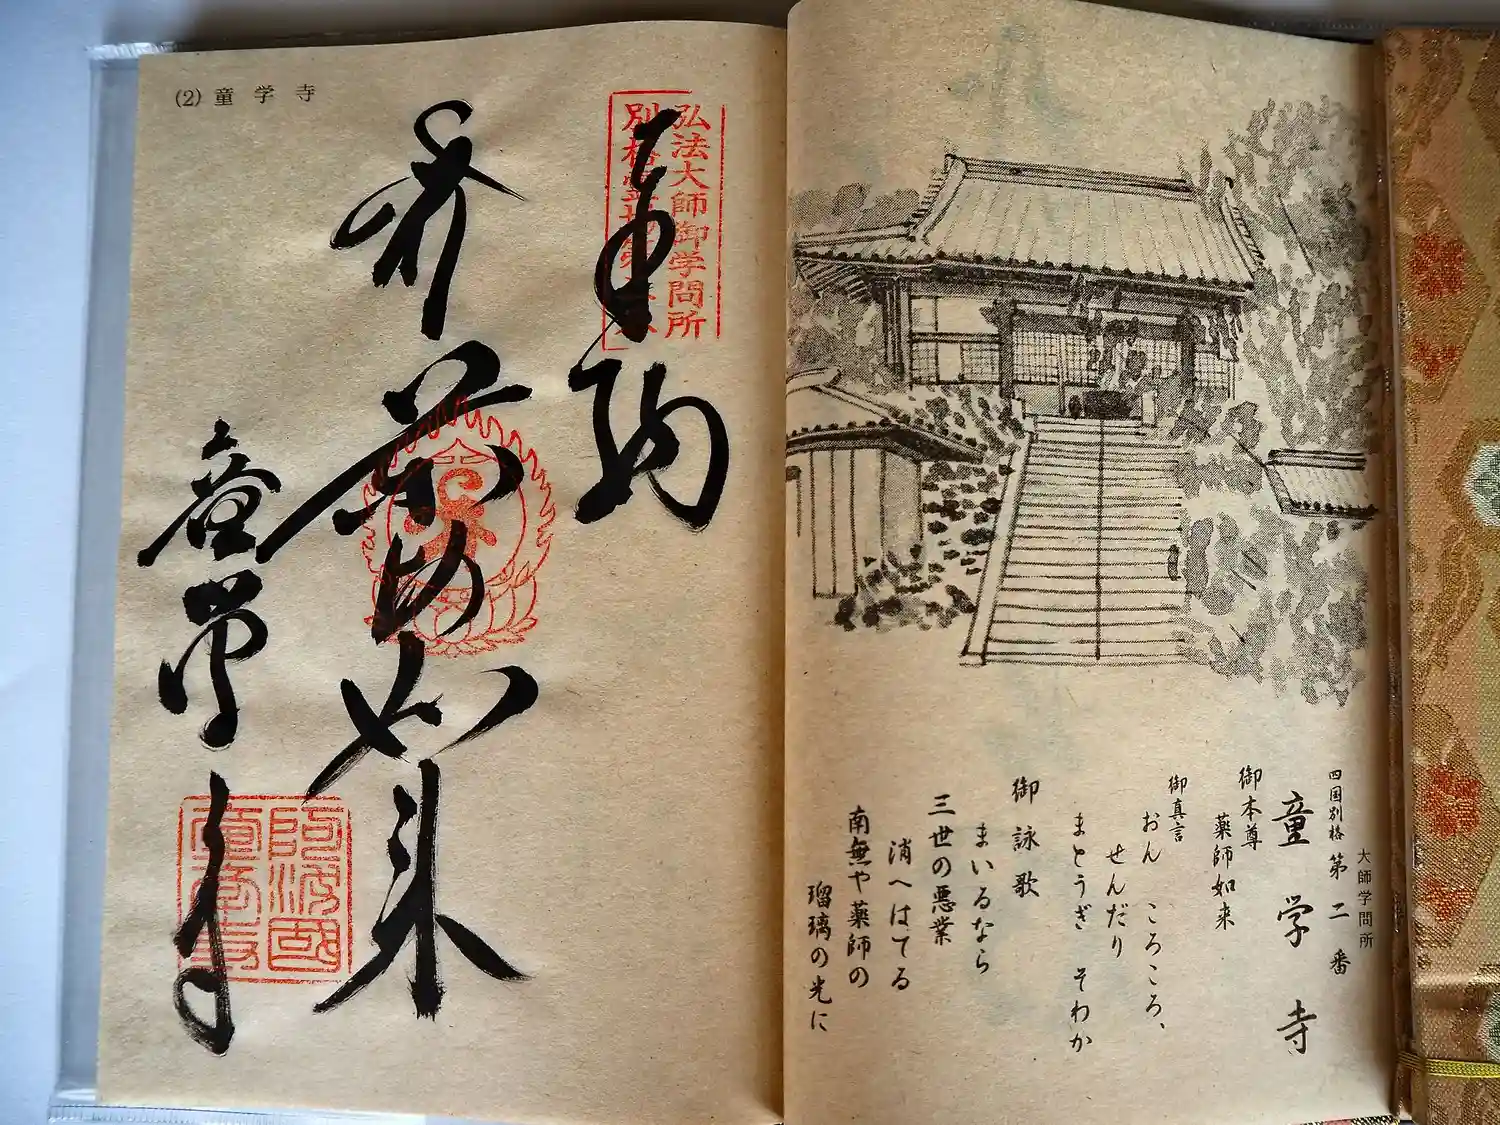 大師学問所
四国別格 第二番
童学寺
御本尊
薬師如来
御真言
おん ころころ、
せんだり
まとうぎ そわか
御詠歌
まいるなら
三世の悪業
消へはてる
南無や薬師の
瑠璃の光に
(2) 童学寺
弘法大師御学問所
奉納
薬師如来
童学寺
阿波國
童学寺